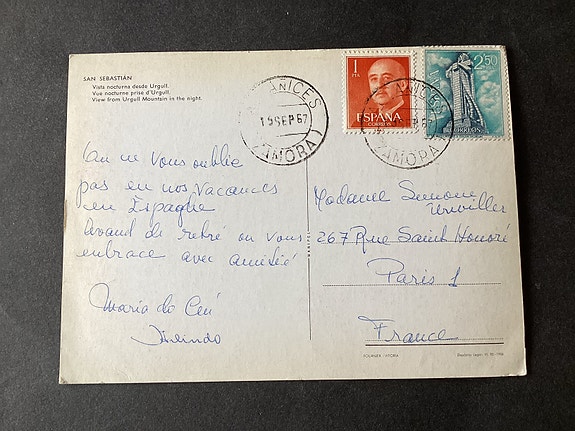 SAN SEBASTIÁN
Vista nocturna desde Urgull.
Vue nocturne prise d'Urgull.
View from Urgull Mountain in the night.
On ne vous oublie
pas en nos vacances
en Espagne
Avand de retré on vous
enbrace avec amitié
Maria do Céu
Arlindo
ANICES
15 SEP 67
(ZAMORA)
1
PTA
ESPAÑA
CORREOS
2,50
CORREOS
ANICES
SEP 67
ZAMORA
Madame Simone
267 Rue Saint Honoré
Paris 1
France
FOURNIER - VITORIA